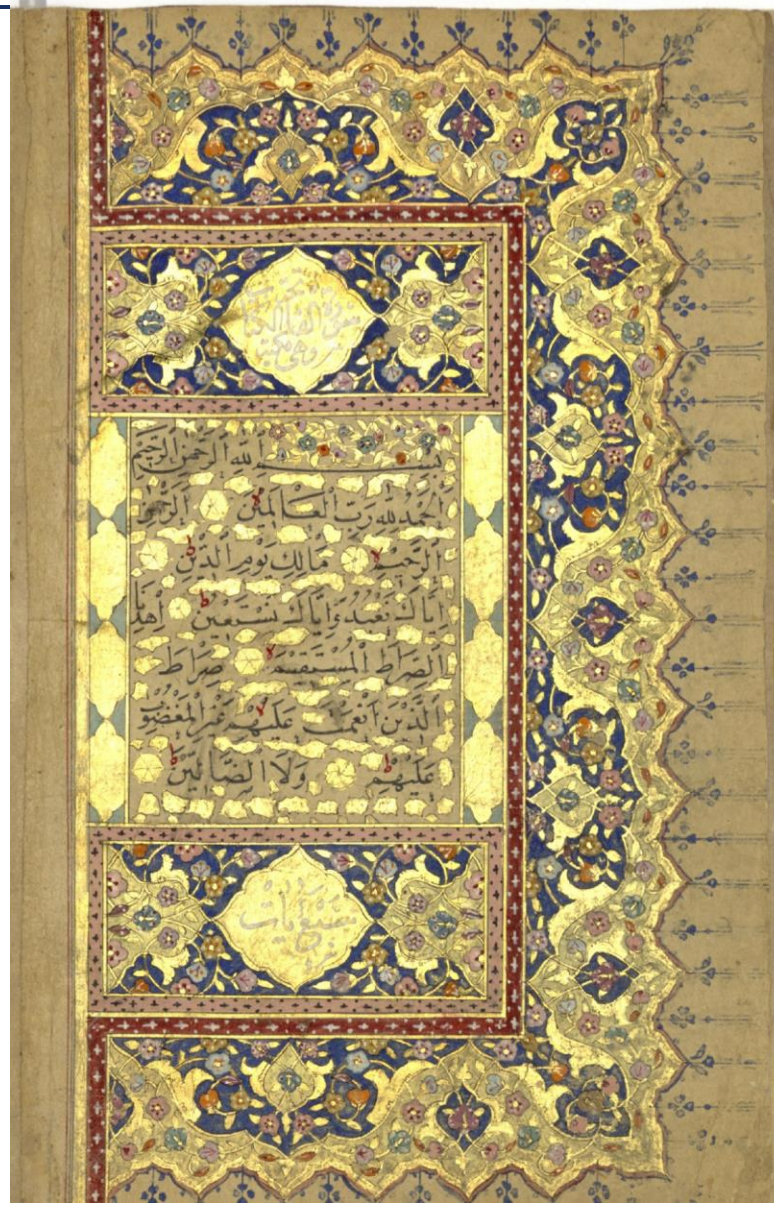 سورة الفاتحة الكتاب
وهي مكية
بِسْمِ اللّٰهِ الرَّحْمٰنِ الرَّحِيمِ
اَلْحَمْدُ لِلّٰهِ رَبِّ الْعَالَمِينَۙ الرَّحْمٰنِ
الرَّحِيمِۙ مَالِكِ يَوْمِ الدِّينِۜ
اِيَّاكَ نَعْبُدُ وَاِيَّاكَ نَسْتَعِينُۜ اِهْدِنَا
الصِّرَاطَ الْمُسْتَقِيمَۙ صِرَاطَ
الَّذِينَ اَنْعَمْتَ عَلَيْهِمْۙ غَيْرِ الْمَغْضُوبِ
عَلَيْهِمْ وَلَا الضَّالِّينَ
سبع آيات